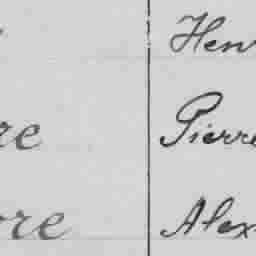 Henr
re Pierre
ore Alex